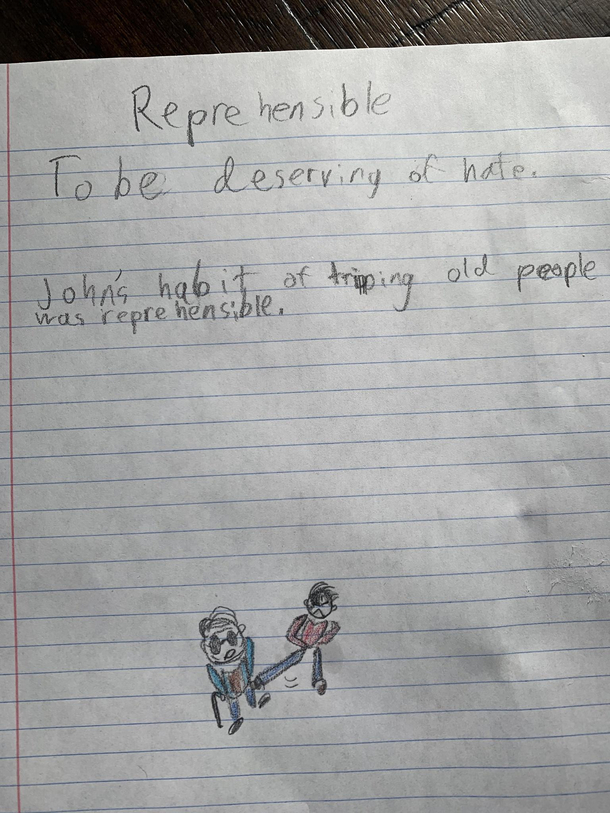 Reprehensible
To be deserving of hate.
John's habit of tripping old people
was reprehensible.